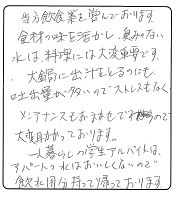 当方飲食業を営んでおります。
食材の味を活かし、臭みのない
水は、料理には大変重要です。
大鍋に出汁をとるのにも、
吐出量が多いのでストレスもなく、
メンテナンスもおまかせできるので
大変助かっております。
一人暮らしの学生アルバイトは、
アパートの水はおいしくないので
飲む水用分持って帰っております